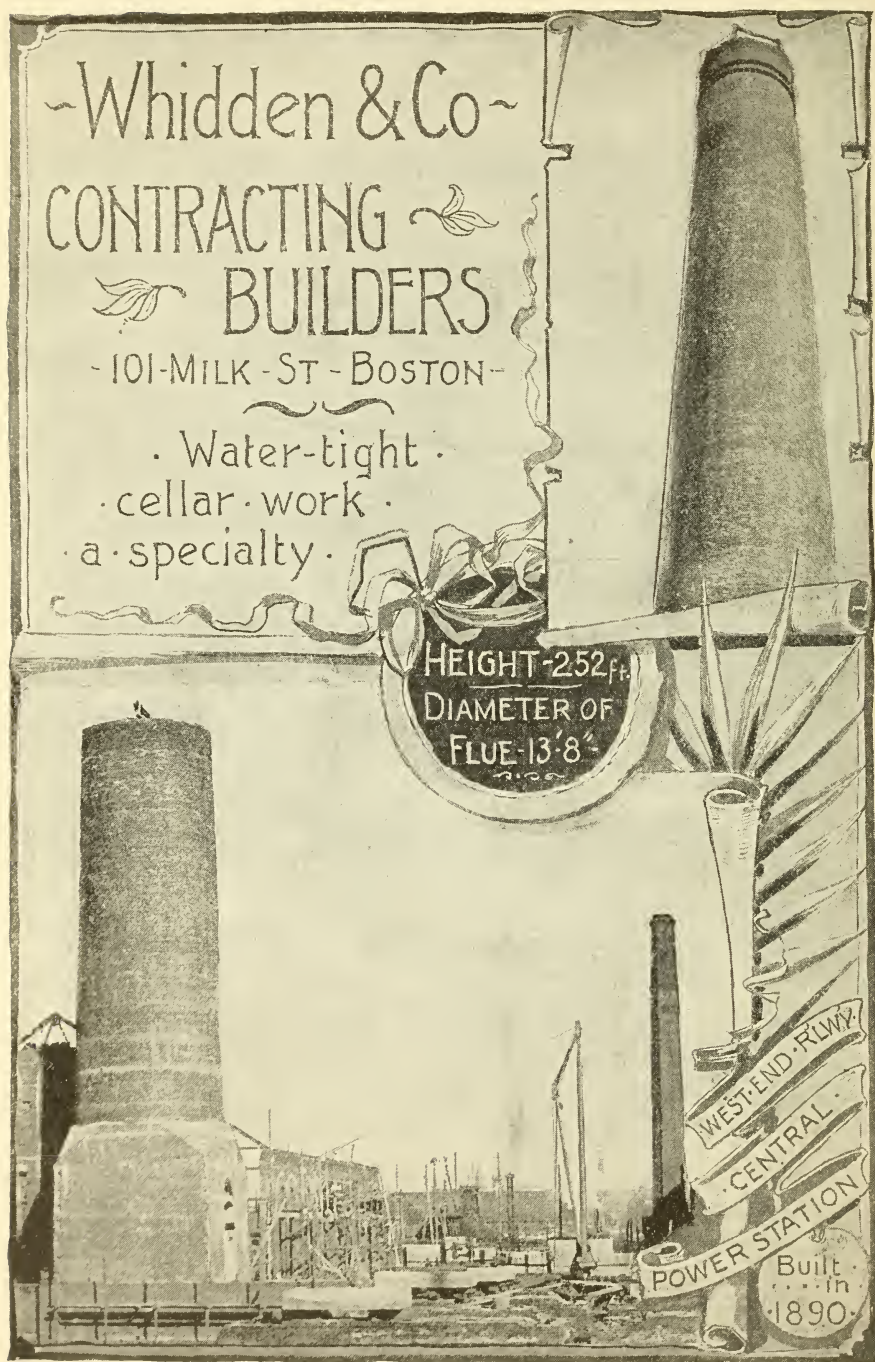 ~Whidden & Co~
CONTRACTING
BUILDERS
-101-MILK-ST-BOSTON-
· Water-tight ·
· cellar · work ·
· a · specialty ·
HEIGHT-252ft.
DIAMETER OF
FLUE-13'8"-
WEST·END·R'LWY·
·CENTRAL·
POWER STATION
Built
in
·1890·